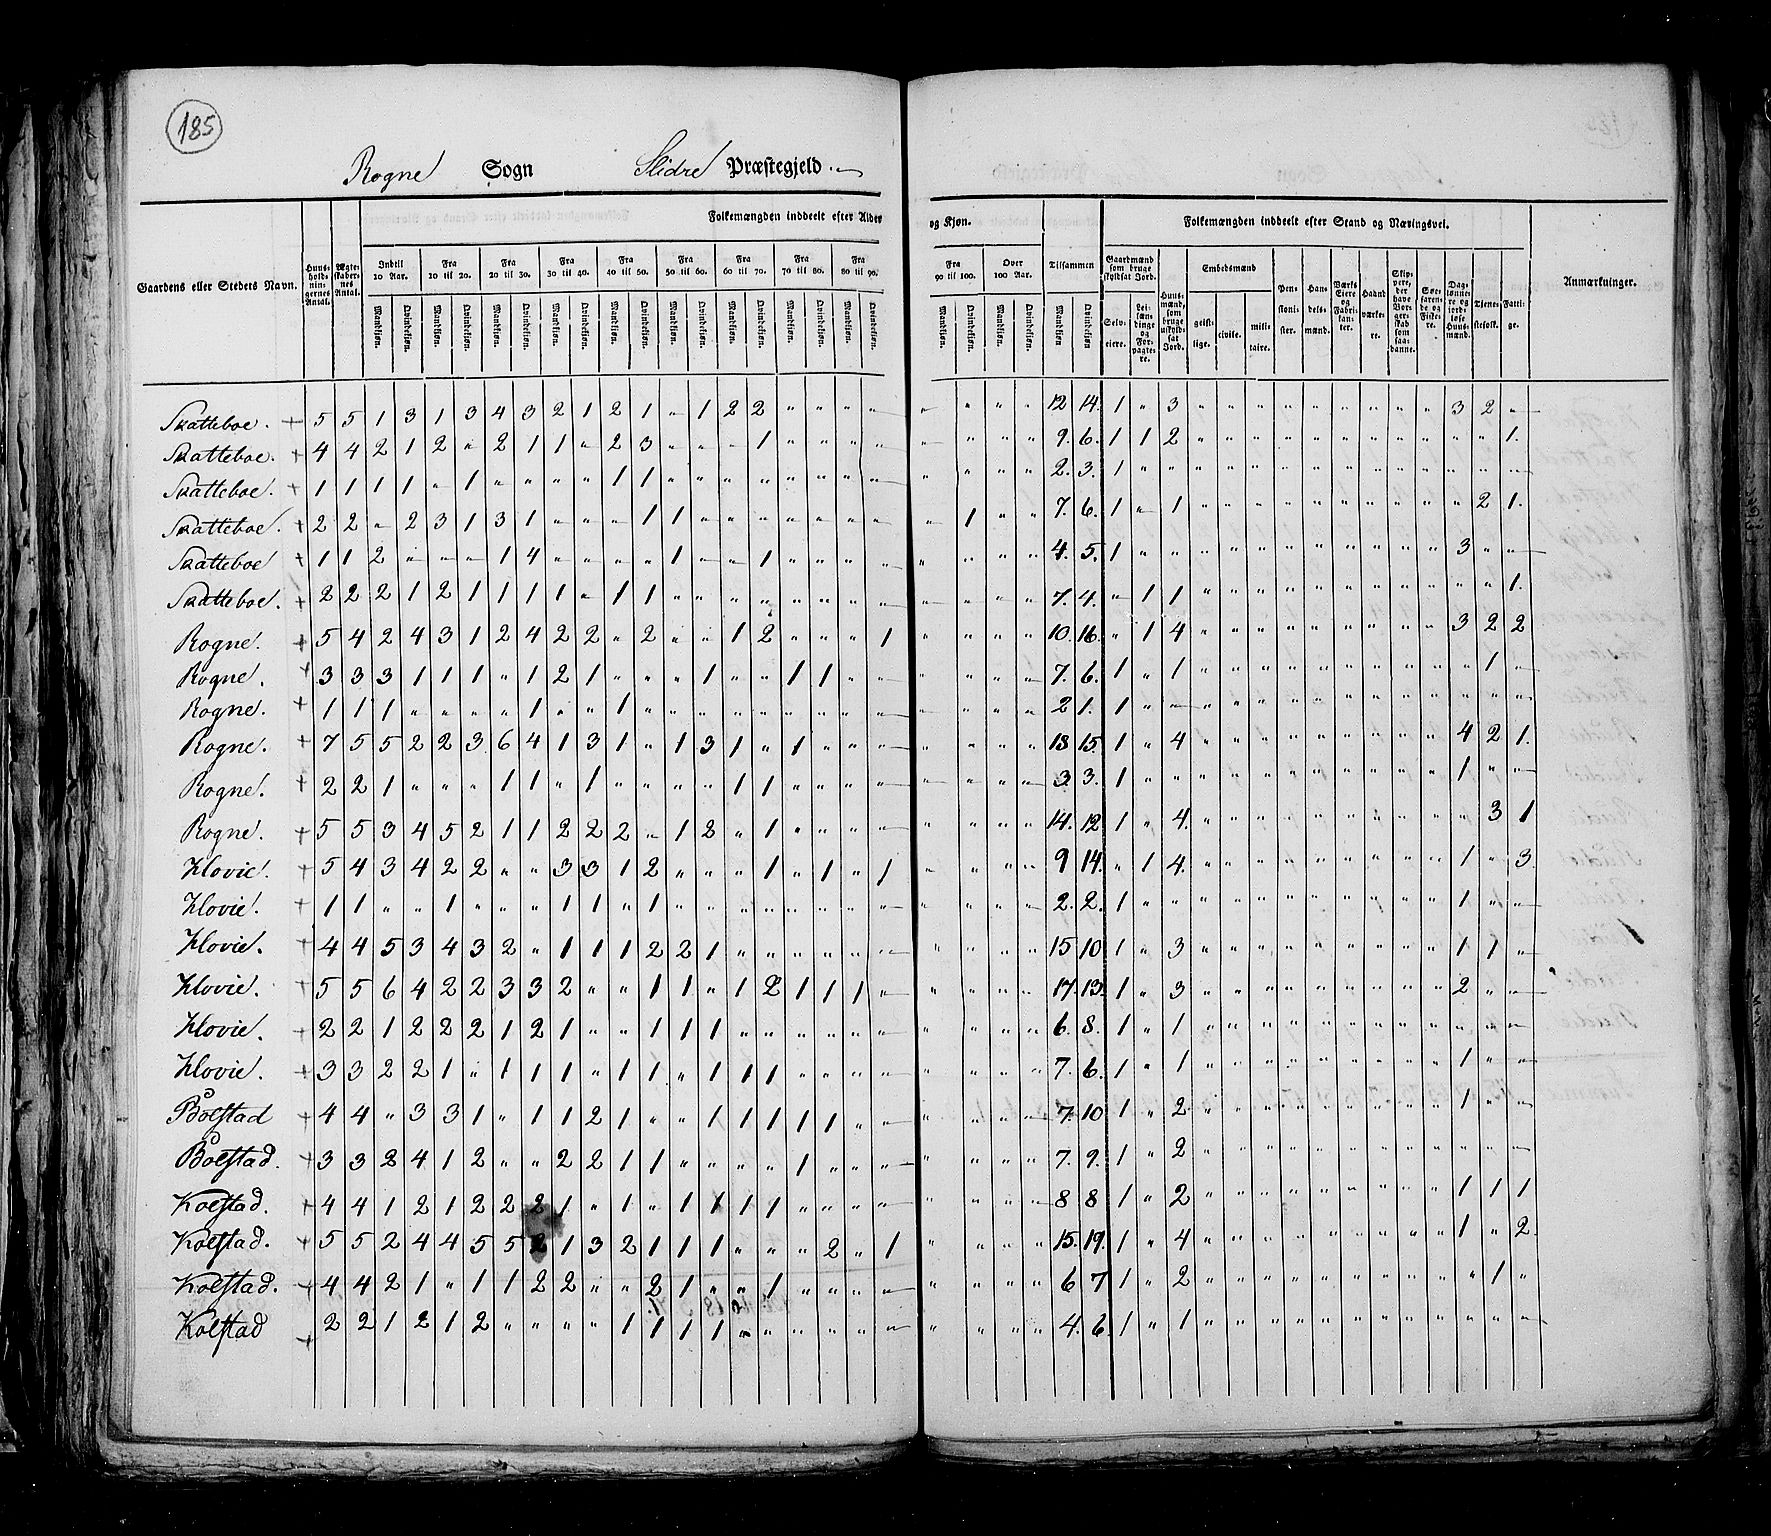 185
Rogne Sogn Slidre Præstegjeld
Gaardens eller Stedets Navn. Huusholdningernes Antal. Ægteskabernes Antal. Folkemængden inddeelt efter Alder og Kjøn. Tilsammen Folkemængden inddeelt efter Stand og Næringsvei. Anmærkninger.
Indtil 10 Aar. Fra 10 til 20. Fra 20 til 30. Fra 30 til 40. Fra 40 til 50. Fra 50 til 60. Fra 60 til 70. Fra 70 til 80. Fra 80 til 90. Fra 90 til 100. Over 100 Aar.
Skatteboe. + 5 5 1 3 1 3 4 3 2 1 2 1 " 1 2 2 " " " " " " " " 12 14. 1 " 3 " " " " " " " " " 3 2 "
Skatteboe. + 4 4 2 1 2 " 2 1 1 " 2 3 " " " 1 " " " " " " " " 9. 6. 1 1 2 " " " " " " " " " " " 1.
Skatteboe. + 1 1 1 1 " 1 " " " " 1 1 " " " " " " " " " " " " 2. 3. 1 " " " " " " " " " " " " " "
Skatteboe. + 2 2 " 2 3 1 3 1 " " " 1 1 " " " " " " " " 1 " " 7. 6. 1 " 1 " " " " " " " " " " 2 1.
Skatteboe + 1 1 2 " " " 1 4 " " " " 1 " " 1 " " " " " " " " 4. 5. 1 " " " " " " " " " " " 3 " "
Skatteboe. + 2 2 2 1 2 1 1 1 1 " 1 1 " " " " " " " " " " " " 7. 4. " 1 1 " " " " " " " " " " " 1.
Rogne. + 5 4 2 4 3 1 2 4 2 2 " 2 " " 1 2 " " " 1 " " " " 10. 16. " 1 4 " " " " " " " " " 3 2 2
Rogne. + 3 3 3 1 1 1 " 1 2 1 " " " 1 " " 1 1 " " " " " " 7. 6. 1 " 1 " " " " " " " " " " 1 "
Rogne. + 1 1 1 " " " " 1 " " 1 " " " " " " " " " " " " " 2 1. 1 " " " " " " " " " " " " " "
Rogne. + 7 5 5 2 2 3 6 4 1 3 1 " 1 3 1 " 1 " " " " " " " 18 15. 1 " 4 " " " " " " " " " 4 2 1.
Rogne. + 2 2 1 " " " 1 1 " 1 " " " " 1 1 " " " " " " " " 3 3. 1 " " " " " " " " " " " 1 " "
Rogne. + 5 5 3 4 5 2 1 1 2 2 2 " 1 2 " 1 " " " " " " " " 14. 12 1 " 4. " " " " " " " " " " 3 1
Klovie. + 5 4 3 4 2 2 " " 3 3 1 2 " " " 1 " 1 " 1 " " " " 9 14. " 1 4. " " " " " " " " " 1 " 3
Klovie. + 1 1 " " 1 " " " 1 1 " 1 " " " " " " " " " " " " 2. 2. 1 " " " " " " " " " " " 1 " "
Klovie. + 4 4 5 3 4 3 2 " 1 1 1 2 2 1 " " " " " " " " " " 15 10 1 " 3 " " " " " " " " " 1 1 "
Klovie. + 5 5 6 4 2 2 3 3 2 " " 1 1 " 1 2 1 1 1 " " " " " 17. 13. 1 " 3 " " " " " " " " " 2 " "
Klovie. + 2 2 1 2 2 2 1 2 1 " " 1 1 1 " " " " " " " " " " 6. 8. 1 " 1 " " " " " " " " " " " "
Klovie. + 3 3 2 2 1 " 1 1 1 " 1 1 " 1 1 1 " " " " " " " " 7. 6. 1 " 1 " " " " " " " " " 1 " "
Bolstad + 4 4 " 3 3 1 " 1 1 2 1 " " 1 1 1 1 1 " " " " " " 7. 10 1 " 2 " " " " " " " " " 1 " "
Bolstad. + 3 3 2 4 1 2 " " 2 2 1 1 " " " " 1 " " " " " " " 7. 9. 1 " 2 " " " " " " " " " " " "
Kolstad. + 4 4 1 2 1 2 2 2 1 " 1 " 1 1 1 1 " " " " " " " " 8 8 1 " 2 " " " " " " " " " 1 1 1
Kolstad. + 5 5 2 4 4 5 5 2 1 3 2 1 1 1 " " " 2 " 1 " " " " 15. 19. 1 " 4 " " " " " " " " " 1 " 2
Kolstad. + 4 4 2 1 " 1 1 2 2 " " 2 1 " " 1 " " " " " " " " 6 7 1 " 2 " " " " " " " " " " 1 "
Kolstad + 2 2 1 2 1 2 " " " " 1 1 1 1 " " " " " " " " " " 4. 6. 1 " 1 " " " " " " " " " " " "